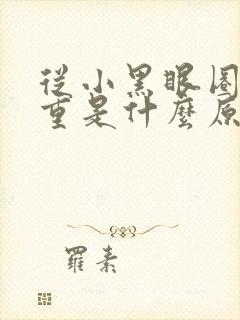 從小黑眼圈
重是什麼原
羅素